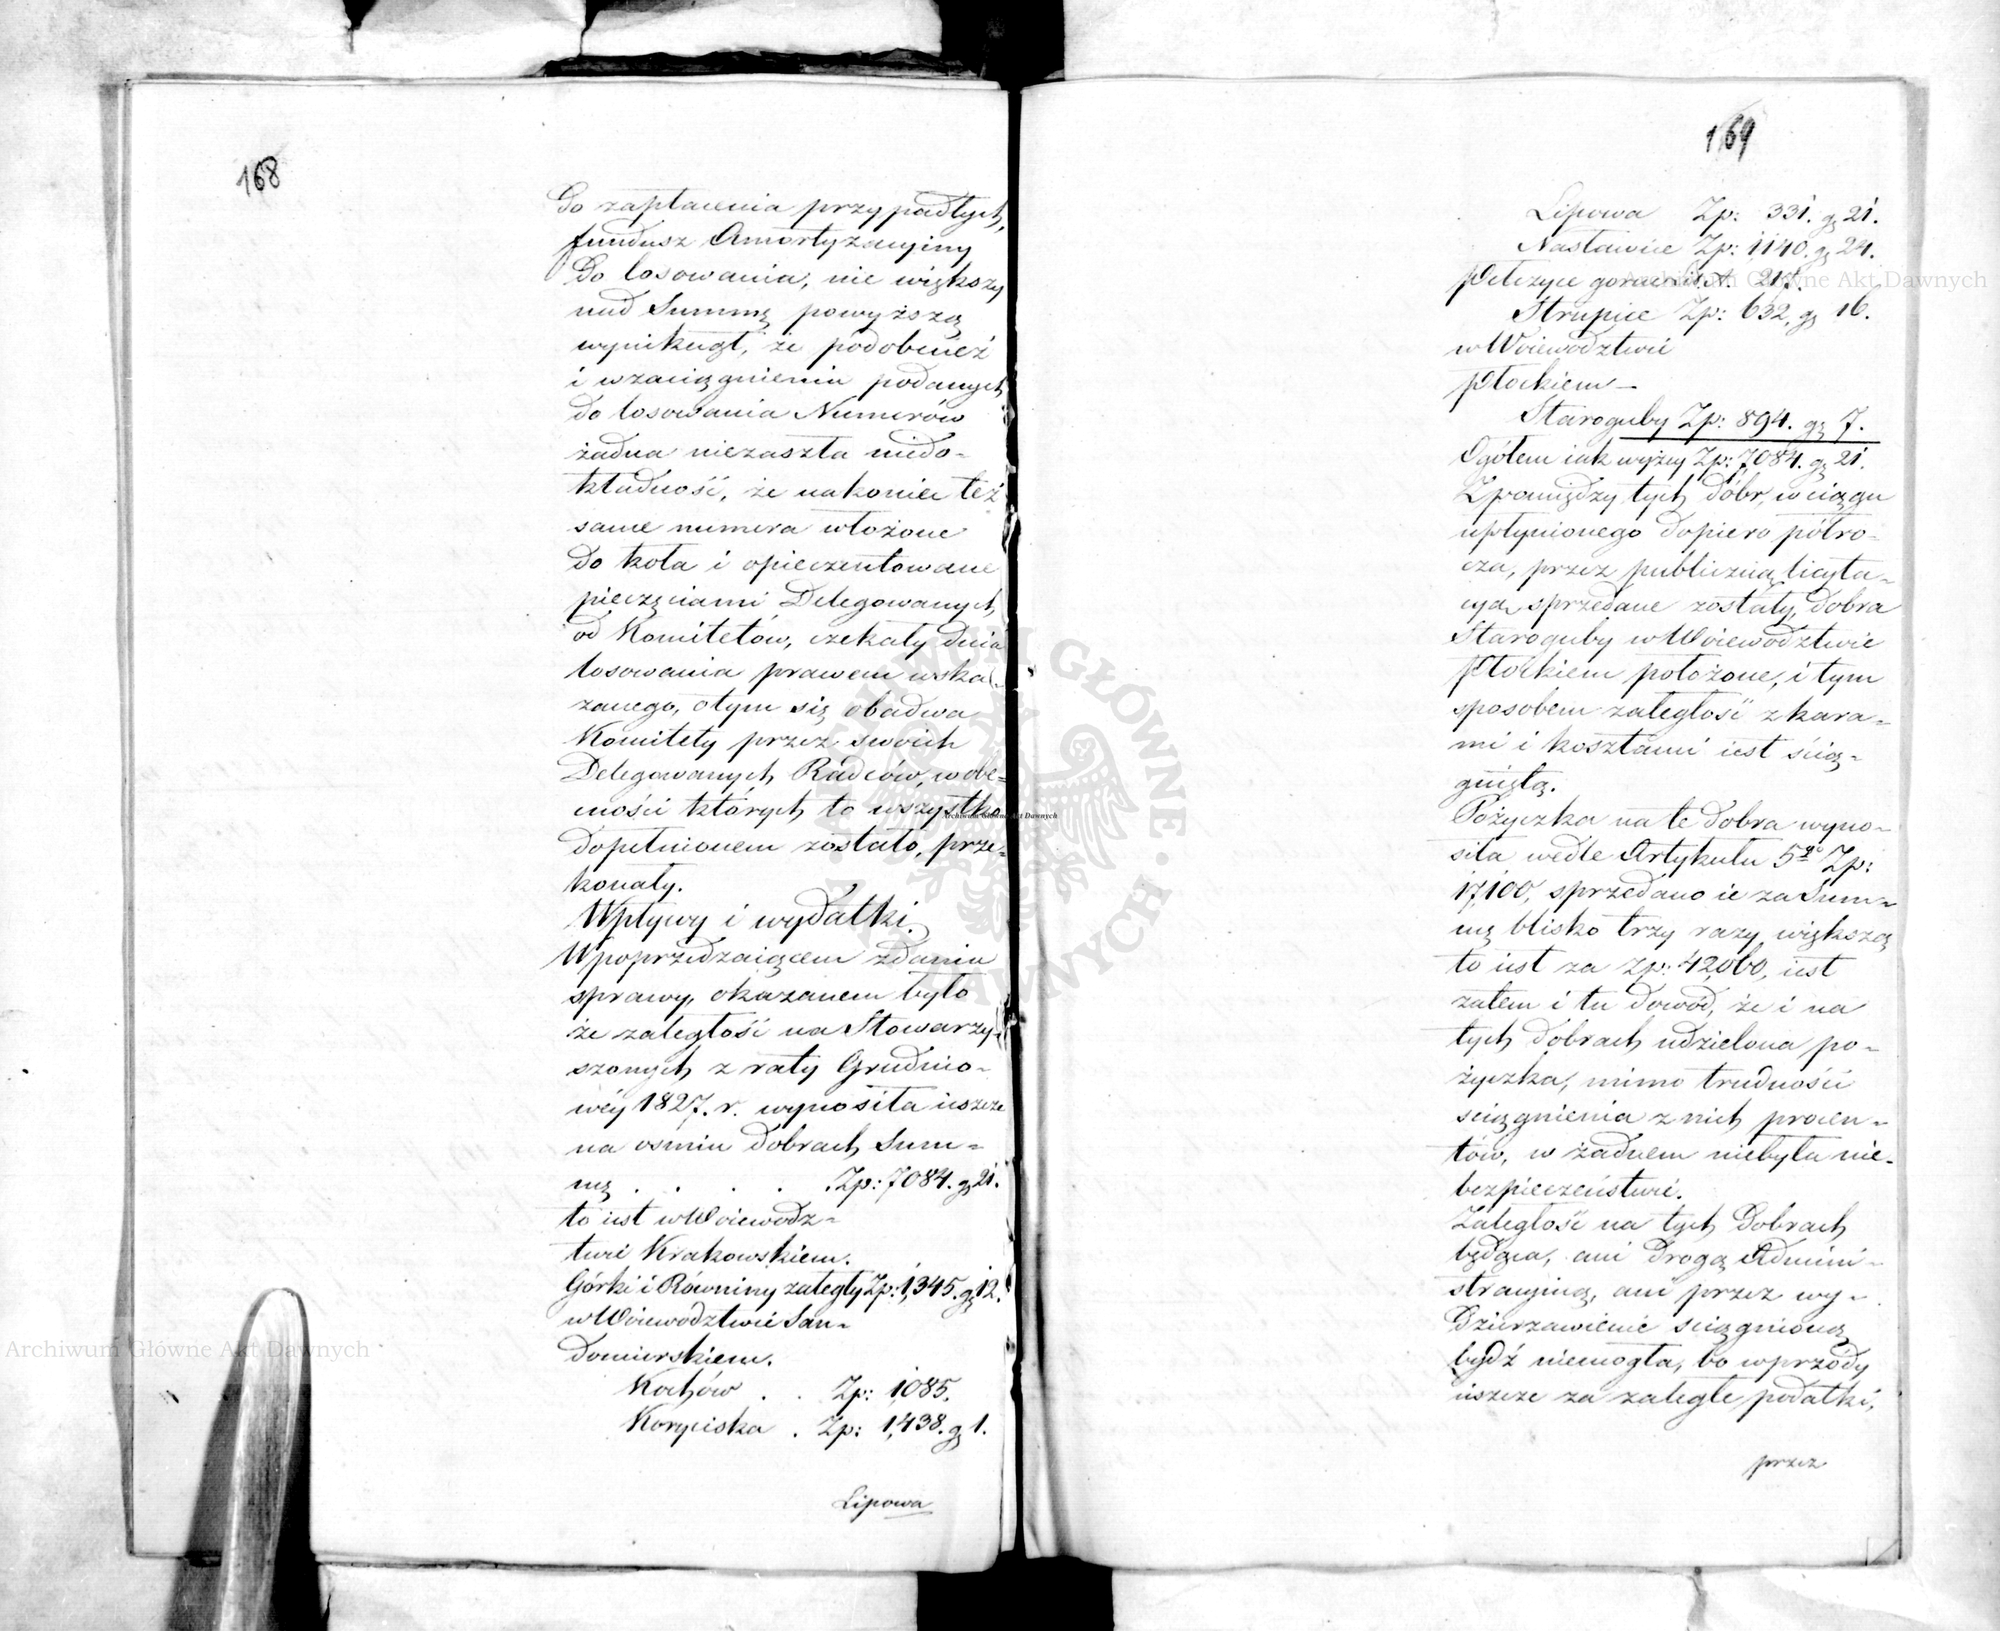 168
do zapłacenia przypadłych,
fundusz Amortyzacyiny
do losowania, nie większy
nad Summę powyższą
wyniknął, że podobnież
i wzaciągnieniu podanych
do losowania Numerów
żadna niezaszła niedo-
kładność, że nakoniec też
same numera włożone
do koła i opieczentowane
pieczęciami Delegowanych
od Komitetów, czekały dnia
losowania prawem wska-
zanego, otym się obadwa
Komitety przez swoich
Delegowanych Radców, wobe-
cności których to wszystko
dopełnionem zostało, prze-
konały.
Wpływy i wydatki.
Wpoprzedzaiącem zdaniu
sprawy, okazanem było
że zaległość na Stowarzy-
szonych z raty Grudnio-
wéy 1827. r. wynosiła ieszcze
na ośmiu dobrach Sum-
mę . . . . . Zp: 7084. g 21.
to iest wWoiewódz-
twie Krakowskiem.
Górki i Równiny zaległy Zp: 1,345. g 12.
wWoiewództwie San-
domierskiem.
Kochów . . Zp: 1,085.
Koryciska . Zp: 1,438. g 1.
Lipowa
169
Lipowa Zp: 331. g 21.
Nasławice Zp: 1140. g 24.
Pełczyce górne Lit. A. 217.
Strupice Zp: 632, g 16.
wWoiewództwie
Płockiem —
Staroguby Zp: 894. g 7.
Ogółem iak wyżey Zp: 7,084. g 21.
Zpomiędzy tych dóbr, wciągu
upłynionego dopiero półro-
cza, przez publiczną licyta-
cyą sprzedane zostały dobra
Staroguby wWoiewództwie
Płockiem położone, i tym
sposobem zaległość z kara-
mi i kosztami iest ścią-
gniętą.
Pożyczka na te dobra wyno-
siła wedle Artykułu 5go Zp:
17,100, sprzedano ie za Sum-
mę blisko trzy razy większą
to iest za zp: 42060, iest
zatem i tu dowód, że i na
tych dobrach udzielona po-
życzka, mimo trudności
ściągnienia z nich procen-
tów, w żadnem niebyła nie-
bezpieczeństwie.
Zaległość na tych Dobrach
będąca, ani drogą Admini-
stracyiną, ani przez wy-
dzierżawienie ściągnioną
bydź niemogła, bo wprzódy
ieszcze za zaległe podatki,
przez
Archiwum Główne Akt Dawnych
Archiwum Główne Akt Dawnych
Archiwum Główne Akt Dawnych